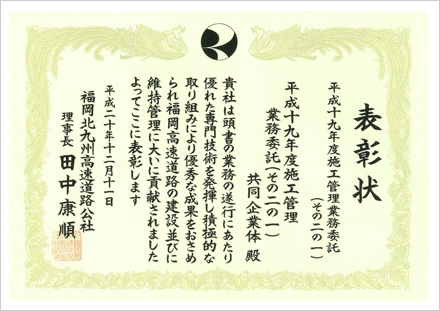 表彰状
平成十九年度施工管理業務委託
(その二の一)
平成十九年度施工管理
業務委託(その二の一)
共同企業体 殿
貴社は頭書の業務の遂行にあたり
優れた専門技術を発揮し積極的な
取り組みにより優秀な成果をおさめ
られ福岡高速道路の建設並びに
維持管理に大いに貢献されました
よってここに表彰します
平成二十年十二月十一日
福岡北九州高速道路公社
理事長 田中康順